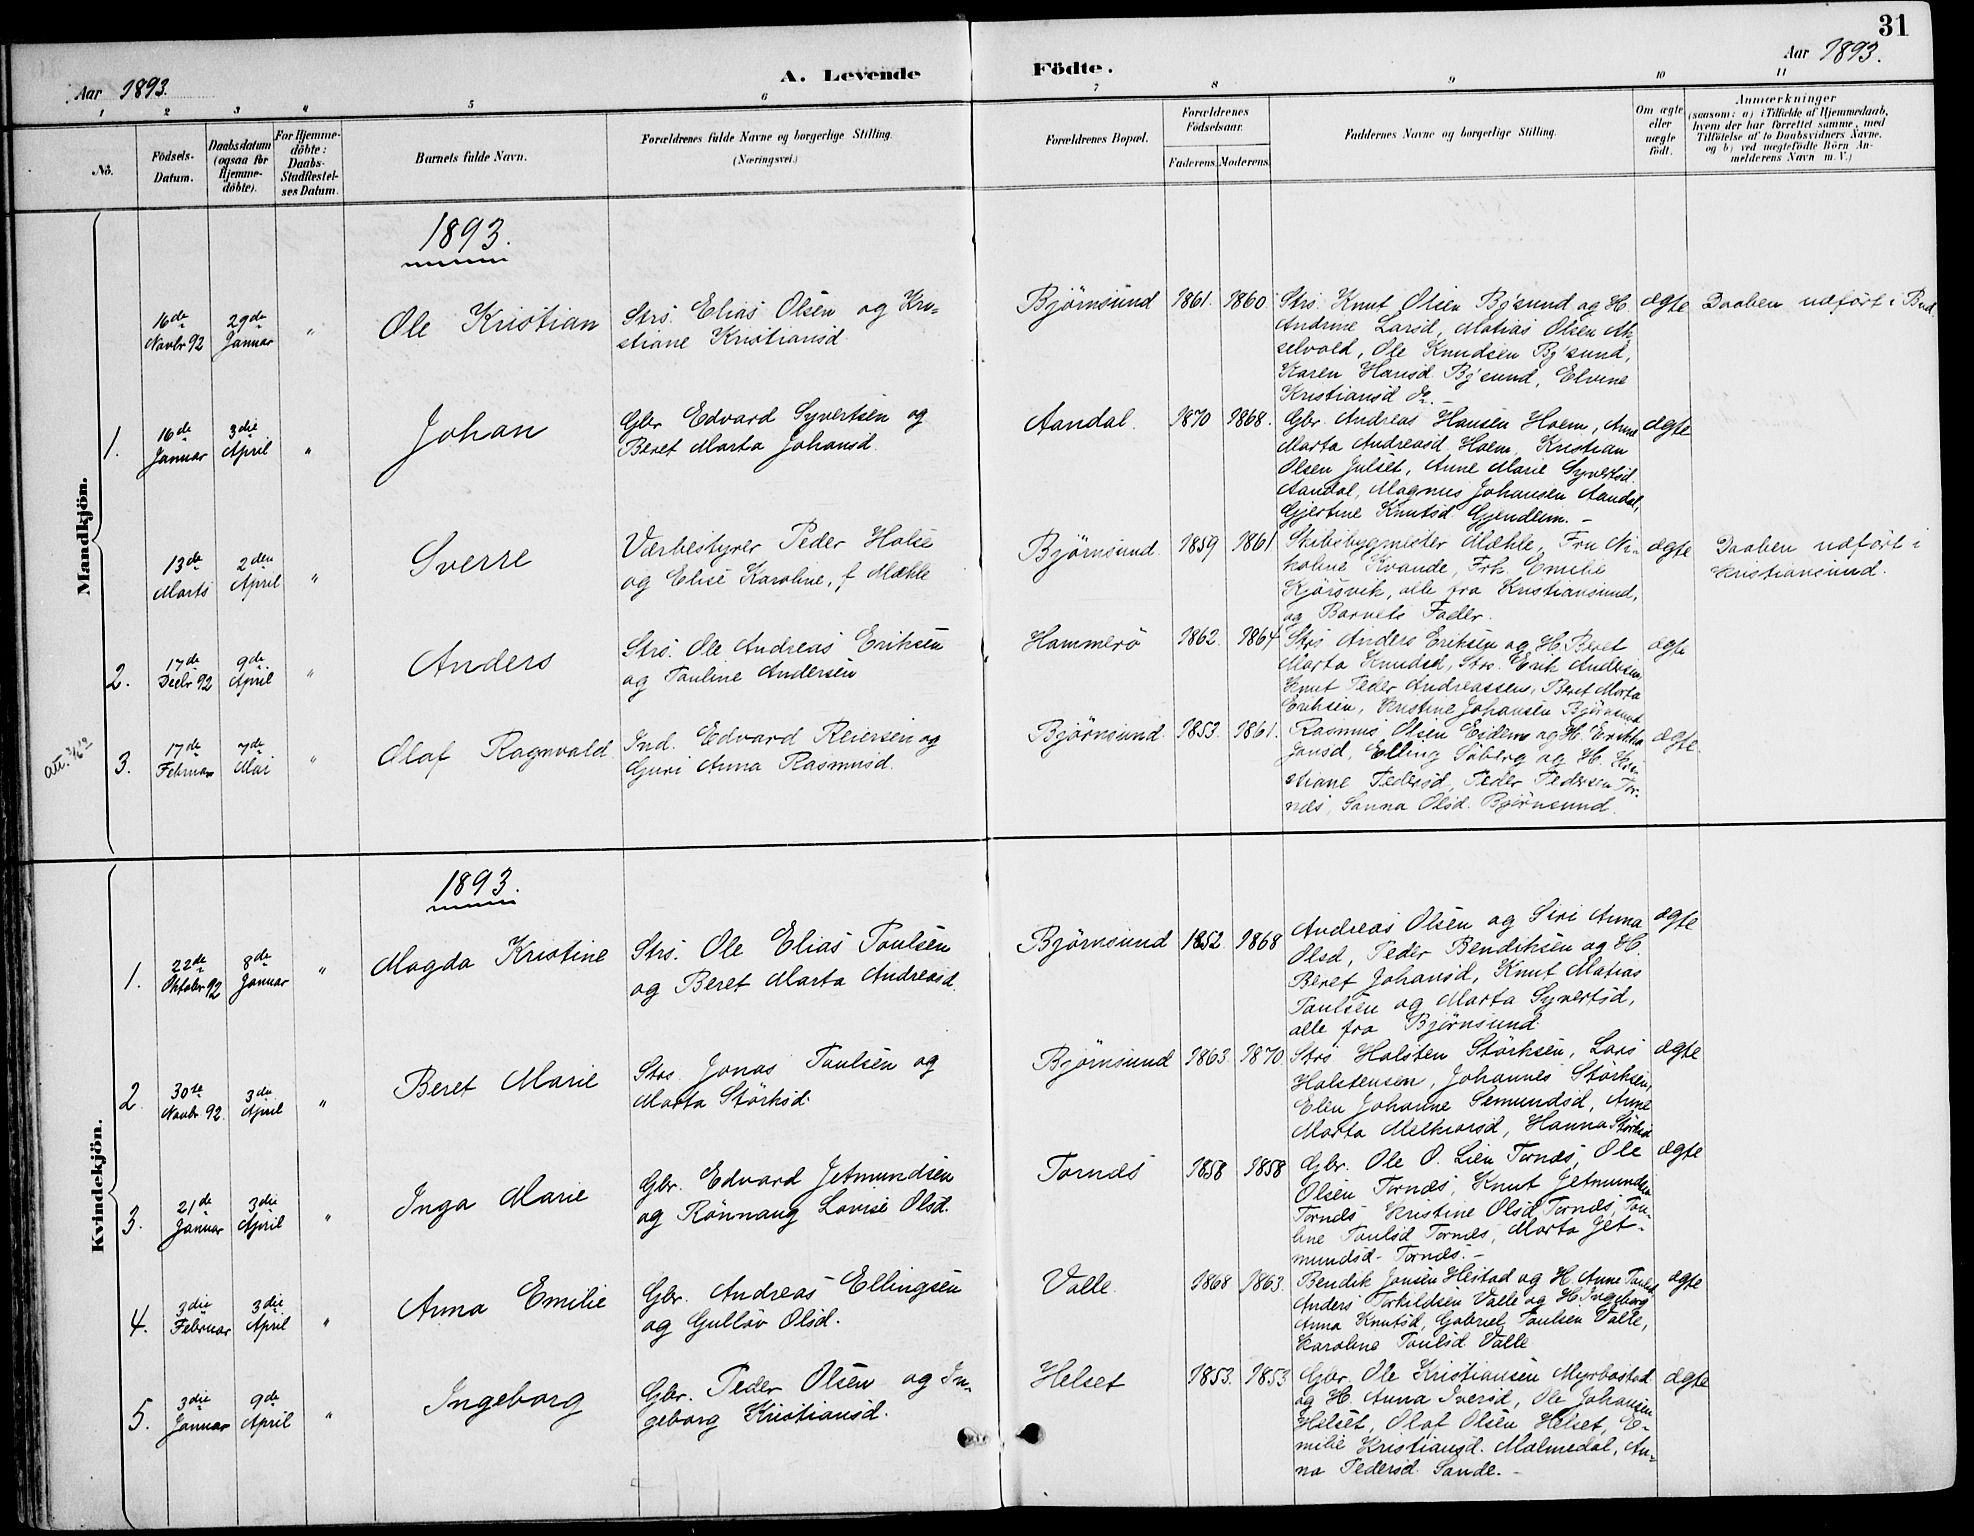 31
Aar 1893.
A. Levende Födte.
Aar 1893.
1 2 3 4 5 6 7 8 9 10 11
No.
Födsels-
Datum.
Daabsdatum
(ogsaa for
Hjemme-
döbte).
For Hjemme-
döbte:
Daabs-
Stadfæstel-
ses Datum.
Barnets fulde Navn.
Forældrenes fulde Navne og borgerlige Stilling.
(Næringsvei.)
Forældrenes Bopæl.
Forældrenes
Födselsaar.
Faderens. Moderens.
Faddernes Navne og borgerlige Stilling.
Om ægte
eller
uægte
født.
Anmærkninger
(saasom: a) i Tilfælde af Hjemmedaab,
hvem der har forrettet samme, med
Tilföielse af to Daabsvidners Navne.
og b) ved uægtefödte Börn An-
melderens Navn m. V.)
Mandkjön.
1893.
16de
Novbr 92
29de
Januar
"
Ole Kristian
Strs. Elias Olsen og Kri-
stiane Kristiansd.
Björnsund
1861. 1860
Strs. Knut Olsen Bj'sund og H.
Andrine Larsd, Matias Olsen Ak-
selvold, Ole Knudsen Bj'sund,
Karen Hansd. Bj'sund, Elvine
Kristiansd do.-
ægte
Daaben udfört i Bud.
1.
16de
Januar
3die
April
"
Johan
Gbr Edvard Syvertsen og
Beret Marta Johansd.
Aandal.
1870 1868.
Gbr Andreas Hansen Hoem, Anne
Marta Andreasd Hoem, Kristian
Olsen Julset, Anne Marie Syvertsd.
Aandal, Magnus Johansen Aandal,
Gjertine Knutsd. Gjendem. -
ægte
13de
Marts
2den
April
"
Sverre
Værbestyrer Peder Holse
og Elise Karoline, f. Mæhle
Björnsund.
1859 1861
Skibsbygmester Mæhle, Fru Ni-
koline Kvande, Frk. Emilie
Kjörsvik, alle fra Kristiansund,
og Barnets Fader.
ægte
Daaben udfört i
Kristiansund.
2.
17de
Decbr 92
9de
April
"
Anders
Strs. Ole Andreas Eriksen
og Pauline Andersen
Hammerö
1862. 1864
Strs Anders Eriksen og H. Beret
Marta Knudsd, Strs. Erik Andersen,
Knut Peder Andreassen, Beret Marta
Eriksen, Kristine Johansen Björnsund
ægte
3.
17de
Februar
7de
Mai
"
Olaf Ragnvald
Ind. Edvard Reiersen og
Guri Anna Rasmusd.
Björnsund.
1853. 1861.
Rasmus Olsen Eidem og H. Erikka
Jansd, Elling Söberg og H. Kri-
stiane Pedersd, Peder Pedersen Tor-
næs, Sanna Olsd. Björnsund.
ægte.
Kvindekjön.
1893.
1.
22de
Oktober 92
8de
Januar
"
Magda Kristine
Strs. Ole Elias Paulsen
og Beret Marta Andreasd.
Björnsund
1852. 1868
Andreas Olsen og Siri Anna
Olsd, Peder Bendiksen og H.
Beret Johansd, Knut Matias
Paulsen og Marta Syvertsd,
alle fra Björnsund.
ægte
2
30te
Novbr 92
3die
April
"
Beret Marie
Strs. Jonas Paulsen og
Marta Störksd.
Björnsund
1863. 1870
Strs Holsten Störksen, Lars
Holstensen, Johannes Störksen,
Elen Johanne Semundsd, Anne
Marta Melkiorsd, Hanna Störksd
ægte
3.
21de
Januar
3die
April
"
Inga Marie
Gbr. Edvard Jetmundsen
og Rönnaug Lovise Olsd.
Tornæs
1858 1858
Gbr. Ole O. Lien Tornæs, Ole
Olsen Tornæs, Knut Jetmundsen
Tornæs Kristine Olsd Tornæs, Pau-
line Paulsd Tornæs, Marta Jet-
mundsd. Tornæs.-
ægte
4.
3die
Februar
3die
April
"
Anna Emilie
Gbr. Andreas Ellingsen
og Gulløv Olsd.
Valle.
1868 1863.
Bendik Jonsen Hestad og H. Anne Paulsd
Anders Torkildsen Valle og H. Ingeborg
Anna Knutsd, Gabriel Paulsen Valle,
Karoline Paulsd Valle
ægte
5.
3die
Januar
9de
April
"
Ingeborg
Gbr. Peder Olsen og In-
geborg Kristiansd.
Helset
1853. 1853
Gbr. Ole Kristiansen Myrbostad
og H. Anna Iversd, Ole Johansen
Helset, Olaf Olsen Helset, E-
milie Kristiansd. Malmedal, An-
na Pedersd. Sande.-
ægte